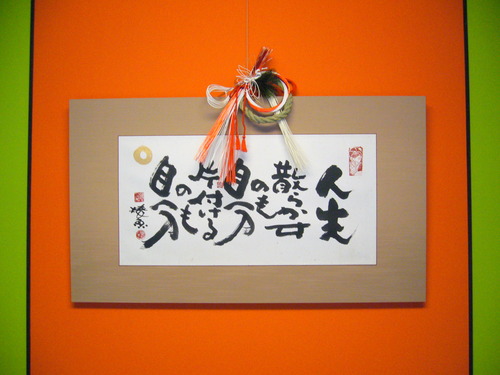 人生
散らかす
のも
自分
片付ける
のも
自分